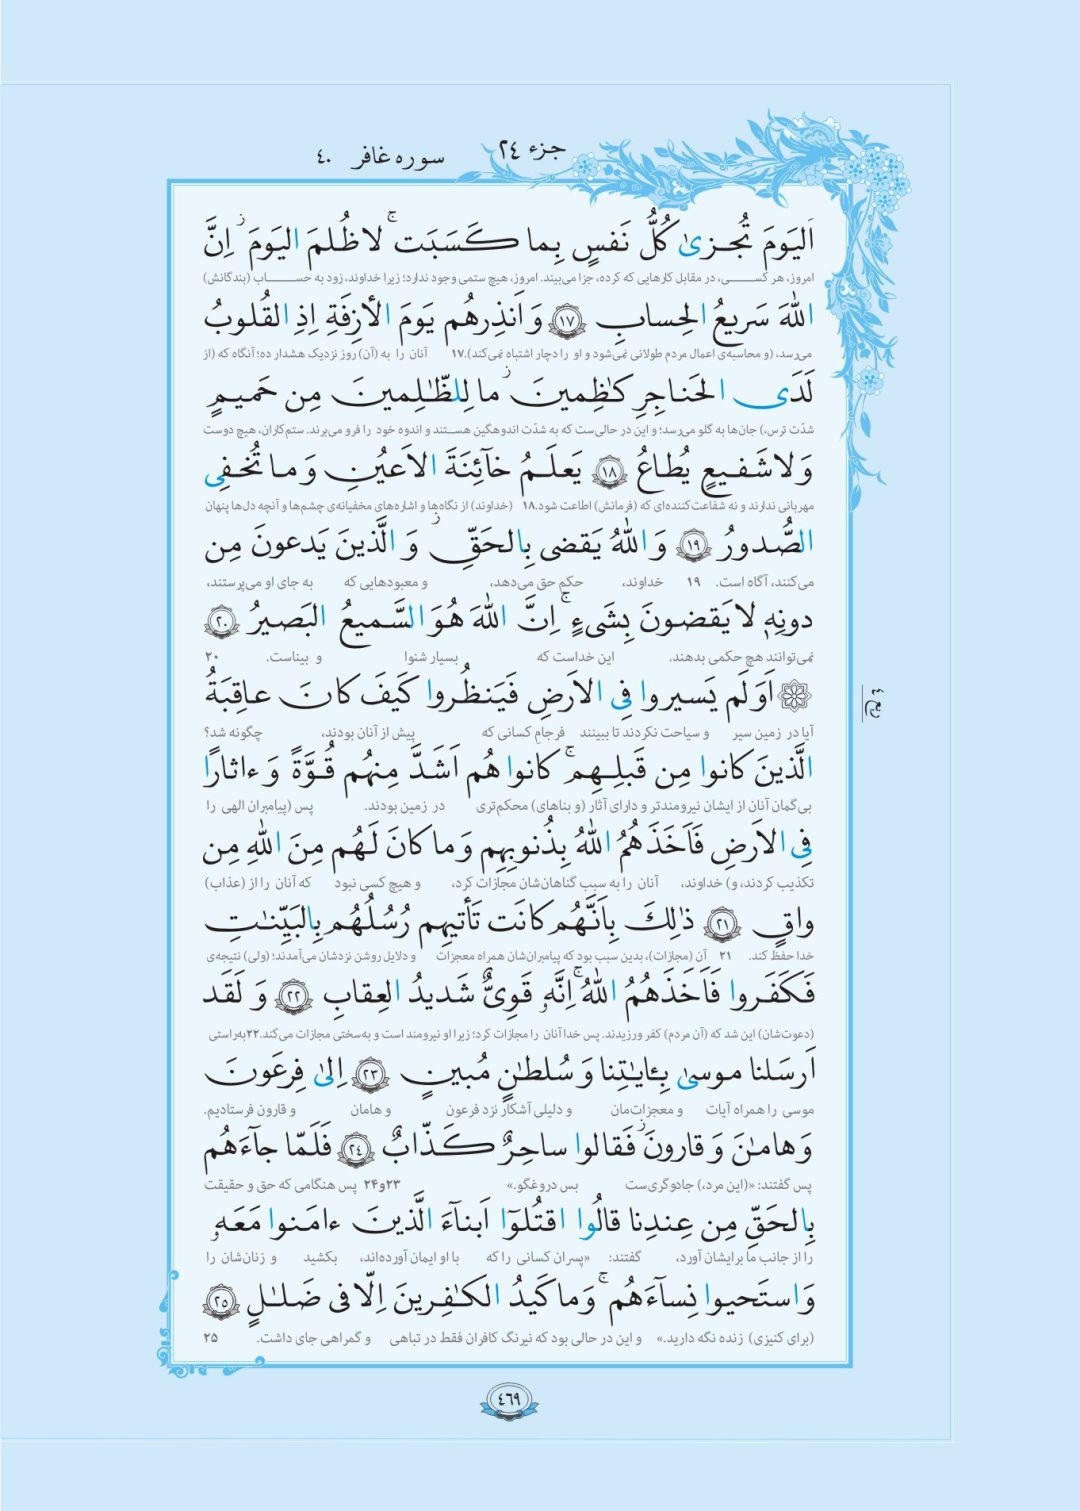 جزء ٢٤
سوره غافر ٤٠
اَليَومَ تُجـزىٰ كُلُّ نَفسٍ بِما كَـسَبَت ۚ لا ظُلمَ اليَومَ ۚ اِنَّ
امروز، هر کســـی، در مقابل کارهایی که کرده، جزا می‌بیند. امروز، هیچ ستمی وجود ندارد؛ زیرا خداوند، زود به حســـاب (بندگانش)
اللهَ سَريعُ الحِسابِ ﴿١٧﴾ وَ اَنذِرهُم يَومَ الأزِفَةِ اِذِ القُلوبُ
می‌رسد، (و محاسبه‌ی اعمال مردم طولانی نمی‌شود و او را دچار اشتباه نمی‌کند).۱۷ آنان را به (آن) روز نزدیک هشدار ده؛ آنگاه که (از
لَدَى الحَناجِرِ كـٰظِمينَ ۚ ما لِلظّـٰلِمينَ مِن حَميـمٍ
شدّت ترس،) جان‌ها به گلو می‌رسد؛ و این در حالی‌ست که به شدّت اندوهگین هســتند و اندوه خود را فرو می‌برند. ستم‌کاران، هیچ دوست
وَ لا شَفـيعٍ يُطاعُ ﴿١٨﴾ يَعلَـمُ خآئِنَةَ الاَعيُنِ وَ ما تُخـفِى
مهربانی ندارند و نه شفاعت‌کننده‌ای که (فرمانش) اطاعت شود.۱۸ (خداوند) از نگاه‌ها و اشاره‌های مخفیانه‌ی چشم‌ها و آنچه دل‌ها پنهان
الصُّدورُ ﴿١٩﴾ وَ اللهُ يَقضى بِالحَقِّ ۚ وَ الَّذينَ يَدعونَ مِن
می‌کنند، آگاه است. ۱۹ خداوند، حکم حق می‌دهد، و معبودهایی که به جای او می‌پرستند،
دونِهٖ لا يَقضونَ بِشَىءٍ ۚ اِنَّ اللهَ هُوَ السَّميعُ البَصيرُ ﴿٢٠﴾
نمی‌توانند هیچ حکمی بدهند. این خداست که بسیار شنوا و بیناست. ۲۰
اَوَلَم يَسيروا فِى الاَرضِ فَيَنظُروا كَيفَ كانَ عاقِبَةُ
آیا در زمین سیر و سیاحت نکردند تا ببینند فرجام کسانی که پیش از آنان بودند، چگونه شد؟
ربع ٤
الَّذينَ كانوا مِن قَبلِـهِم ۚ كانوا هُم اَشَدَّ مِنهُم قُـوَّةً وَ ءاثارًا
بی‌گمان آنان از ایشان نیرومندتر و دارای آثار (و بناهای) محکم‌تری در زمین بودند. پس (پیامبران الهی را
فِى الاَرضِ فَاَخَذَهُمُ اللهُ بِذُنوبِهِم وَ ما كانَ لَـهُم مِنَ اللهِ مِن
تکذیب کردند، و) خداوند، آنان را به سبب گناهان‌شان مجازات کرد، و هیچ کسی نبود که آنان را از (عذاب)
واقٍ ﴿٢١﴾ ذٰلِكَ بِاَنَّهُم كانَت تَأتيهِم رُسُلُهُم بِالبَيِّنـٰتِ
خدا حفظ کند. ۲۱ آن (مجازات)، بدین سبب بود که پیامبران‌شان همراه معجزات و دلایل روشن نزدشان می‌آمدند؛ (ولی) نتیجه‌ی
فَـكَفَروا فَاَخَذَهُمُ اللهُ ۚ اِنَّهٗ قَوِىٌّ شَديدُ العِقابِ ﴿٢٢﴾ وَ لَقَد
(دعوت‌شان) این شد که (آن مردم) کفر ورزیدند. پس خدا آنان را مجازات کرد؛ زیرا او نیرومند است و به‌سختی مجازات می‌کند.۲۲به‌راستی
اَرسَلنا موسىٰ بِـٔايـٰتِنا وَ سُلطـٰنٍ مُبينٍ ﴿٢٣﴾ اِلىٰ فِرعَونَ
موسی را همراه آیات و معجزات‌مان و دلیلی آشکار نزد فرعون و هامان و قارون فرستادیم.
وَ هامـٰنَ وَ قارونَ ۚ فَقالوا ساحِرٌ كَـذّابٌ ﴿٢٤﴾ فَلَمّا جآءَهُم
پس گفتند: «(این مرد،) جادوگری‌ست بس دروغگو.» ۲۳و۲۴ پس هنگامی که حق و حقیقت
بِالحَقِّ مِن عِندِنا قالُوا اقتُلوٓا اَبنآءَ الَّذينَ ءامَنوا مَعَهٗ
را از جانب ما برایشان آورد، گفتند: «پسران کسانی را که با او ایمان آورده‌اند، بکشید و زنان‌شان را
وَ استَحيوا نِسآءَهُم ۚ وَ ما كَيدُ الكـٰفِرينَ اِلّا فى ضَلـٰلٍ ﴿٢٥﴾
(برای کنیزی) زنده نگه دارید.» و این در حالی بود که نیرنگ کافران فقط در تباهی و گمراهی جای داشت. ۲۵
٤٦٩